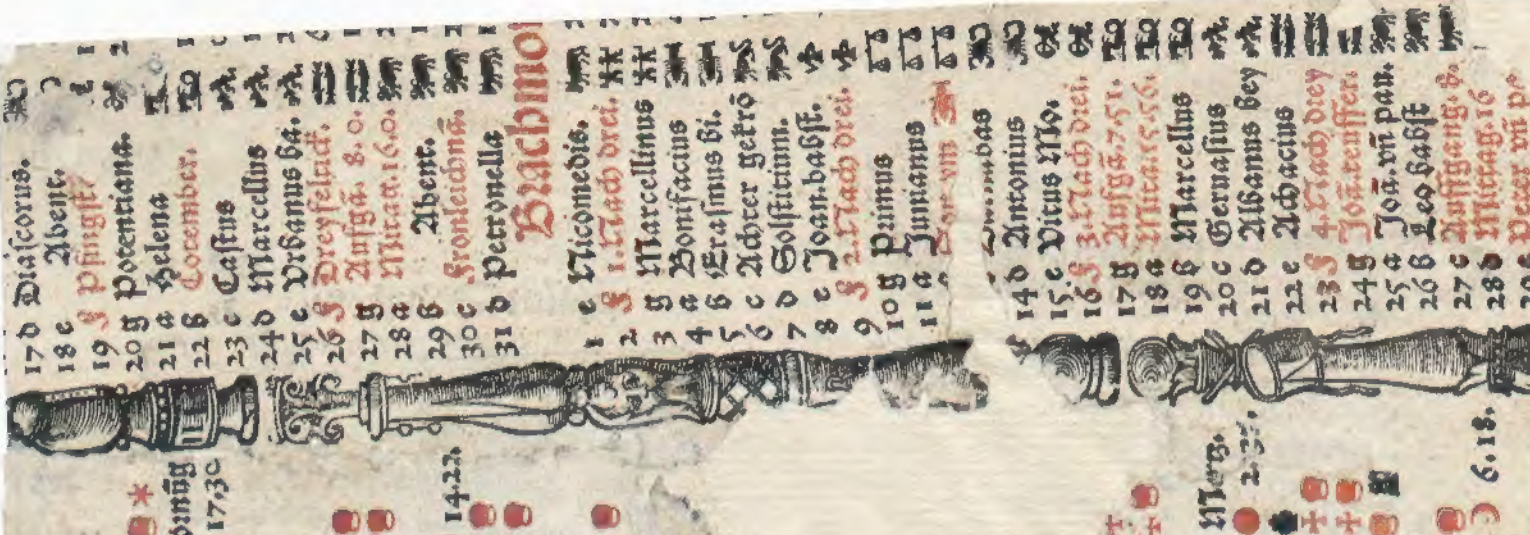 17 d Diascorus.
18 e Abent.
19 F Pfingst.
20 g Potentiana.
21 a Helena
22 b Cotember.
23 c Castus
24 d Marcellus
25 e Vrbanus ba.
26 F Dreyfeltick.
27 g Aufgā. 8.0.
28 a Mittag 16.0.
29 b Abent.
30 c Fronleichnā.
31 d Petronella
Brachmon
1 e Nicomedis.
2 F 1. Nach drei.
3 g Marcellinus
4 a Bonifacius
5 b Erasmus bi.
6 c Achter gekrö
7 d Solstitium.
8 e Joan. babst.
9 F 2. Nach drei.
10 g Primus
11 a Junianus
14 d Antonius
15. e Vitus Mo.
16 F 3. Nach drei.
17 g Aufgā 7.51.
18 a Mitta 15.56.
19 b Marcellus
20 c Geruasius
21 d Albanus bey
22 e Achacius
23 F 4. Nach drey
24 g Joā. teuffer.
25 a Joā. vñ pau.
26 b Leo babst
27 c Auffgang. 8.
28 d Mittag. 16
Peter vñ
17.30
14.22.
Mertz.
6.18.